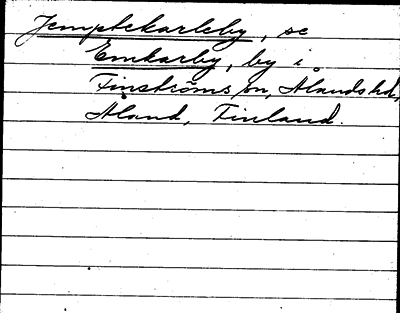 Jemptekarleby, se
Emkarby, by i
Finströms sn, Ålands hd,
Åland, Finland.